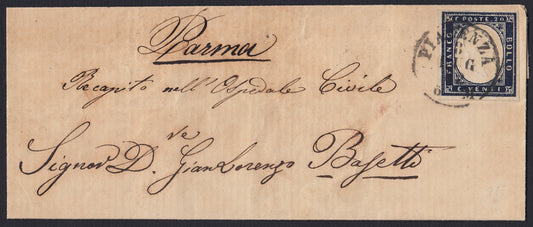 Parma
Recapito nell'Ospedale Civile
Signor D. re GianLorenzo Basetti
C. POSTE. 20
FRANCO
BOLLO
C. VENTI
PIACENZA
G